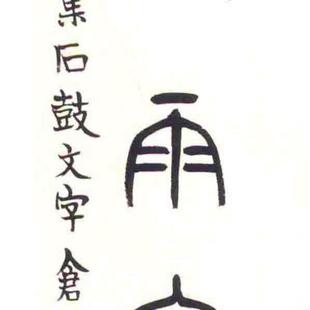 雨
集石鼓文字倉